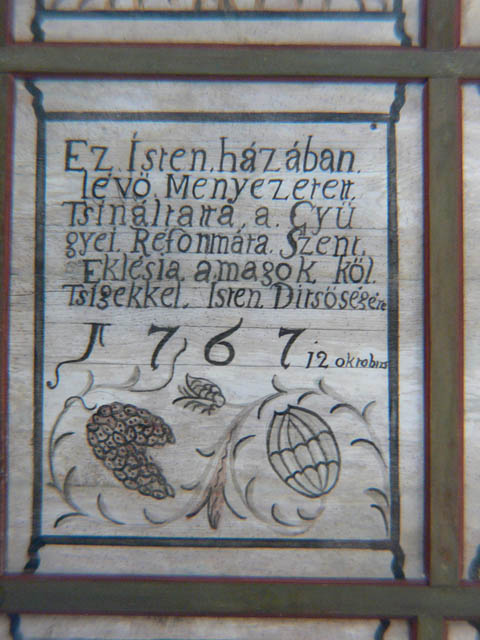 Ez. Isten. házában.
lévő. Menyezetett.
Tsináltatta. a. Gyü
gyei. Reformáta. Szent.
Eklésia. a. magok. köl.
Tsigekkel. Isten. Ditsőségére
1767. 12 oktobris